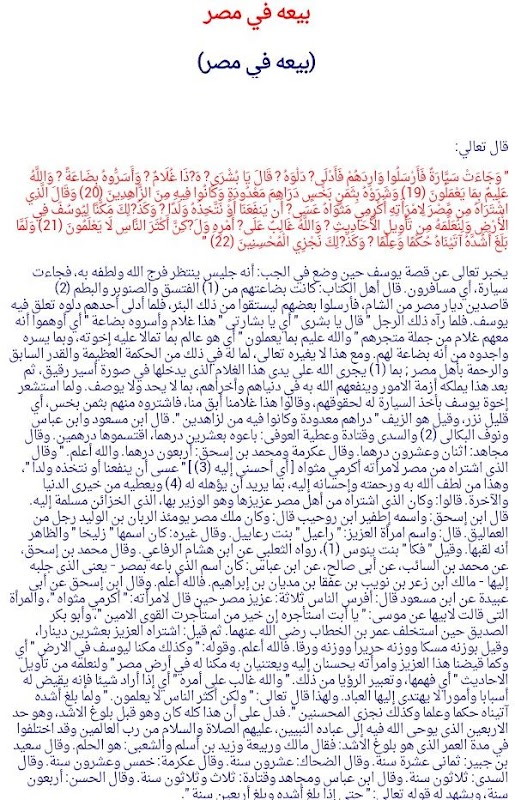 بيعه في مصر
(بيعه في مصر)
قال تعالي:
" وَجَاءَتْ سَيَّارَةٌ فَأَرْسَلُوا وَارِدَهُمْ فَأَدْلَى? دَلْوَهُ ? قَالَ يَا بُشْرَى? ه?ذَا غُلَامٌ ? وَأَسَرُّوهُ بِضَاعَةً ? وَاللَّهُ
عَلِيمٌ بِمَا يَعْمَلُونَ (19) وَشَرَوْهُ بِثَمَنٍ بَخْسٍ دَرَاهِمَ مَعْدُودَةٍ وَكَانُوا فِيهِ مِنَ الزَّاهِدِينَ (20) وَقَالَ الَّذِي
اشْتَرَاهُ مِن مِّصْرَ لِامْرَأَتِهِ أَكْرِمِي مَثْوَاهُ عَسَى? أَن يَنفَعَنَا أَوْ نَتَّخِذَهُ وَلَدًا ? وَكَذ?لِكَ مَكَّنَّا لِيُوسُفَ فِي
الْأَرْضِ وَلِنُعَلِّمَهُ مِن تَأْوِيلِ الْأَحَادِيثِ ? وَاللَّهُ غَالِبٌ عَلَى? أَمْرِهِ وَل?كِنَّ أَكْثَرَ النَّاسِ لَا يَعْلَمُونَ (21) وَلَمَّا
بَلَغَ أَشُدَّهُ آتَيْنَاهُ حُكْمًا وَعِلْمًا ? وَكَذ?لِكَ نَجْزِي الْمُحْسِنِينَ (22) "
يخبر تعالى عن قصة يوسف حين وضع في الجب: أنه جليس ينتظر فرج الله ولطفه به، فجاءت
سيارة، أي مسافرون. قال أهل الكتاب: كانت بضاعتهم من (1) الفتسق والصنوبر والبطم (2)
قاصدين ديار مصر من الشام، فأرسلوا بعضهم ليستقوا من ذلك البئر، فلما أدلى أحدهم دلوه تعلق فيه
يوسف. فلما رآه ذلك الرجل " قال يا بشرى " أي يا بشارتي " هذا غلام وأسروه بضاعة " أي أوهموا أنه
معهم غلام من جملة متجرهم " والله عليم بما يعملون " أي هو عالم بما تمالا عليه إخوته، وبما يسره
واجدوه من أنه بضاعة لهم. ومع هذا لا يغيره تعالى، لما له في ذلك من الحكمة العظيمة والقدر السابق
والرحمة بأهل مصر ؛ بما (1) يجرى الله على يدى هذا الغلام الذي يدخلها في صورة أسير رقيق، ثم
بعد هذا يملكه أزمة الامور وينفعهم الله به في دنياهم وأخراهم، بما لا يحد ولا يوصف. ولما استشعر
إخوة يوسف بأخذ السيارة له لحقوهم، وقالوا هذا غلامنا أبق منا، فاشتروه منهم بثمن بخس، أي
قليل نزر، وقيل هو الزيف " دراهم معدودة وكانوا فيه من لزاهدين ". قال ابن مسعود وابن عباس
ونوف البكالى (2) والسدى وقتادة وعطية العوفى: باعوه بعشرين درهما، اقتسموها درهمين. وقال
مجاهد: اثنان وعشرون درهما. وقال عكرمة ومحمد بن إسحق: أربعون درهما. والله أعلم. " وقال
الذي اشتراه من مصر لامرأته أكرمي مثواه [ أي أحسني إليه (3) ] " عسى أن ينفعنا أو نتخذه ولدا ".
وهذا من لطف الله به ورحمته وإحسانه إليه، بما يريد أن يؤهله له (4) ويعطيه من خيرى الدنيا
والآخرة. قالوا: وكان الذي اشتراه من أهل مصر عزيزها وهو الوزير بها، الذي الخزائن مسلمة إليه.
قال ابن إسحق: واسمه إطفير ابن روحيب قال: وكان ملك مصر يومئذ الريان بن الوليد رجل من
العماليق. قال: واسم امرأة العزيز: " راعيل " بنت رعاييل. وقال غيره: كان اسمها " زليخا " والظاهر
أنه لقبها. وقيل " فكا " بنت ينوس (1)، رواه الثعلبي عن ابن هشام الرفاعي. وقال محمد بن إسحق،
عن محمد بن السائب، عن أبي صالح، عن ابن عباس: كان اسم الذي باعه بمصر - يعنى الذي جلبه
إليها - مالك ابن زعر بن نويب بن عفقا بن مديان بن إبراهيم. فالله أعلم. وقال ابن إسحق عن أبي
عبيدة عن ابن مسعود قال: أفرس الناس ثلاثة: عزيز مصر حين قال لامرأته: " أكرمي مثواه "، والمرأة
التى قالت لابيها عن موسى: " يا أبت استأجره إن خير من استأجرت القوى الامين "، وأبو بكر
الصديق حين استخلف عمر بن الخطاب رضى الله عنهما. ثم قيل: اشتراه العزيز بعشرين دينارا،
وقيل بوزنه مسكا ووزنه حريرا ووزنه ورقا. فالله أعلم. وقوله: " وكذلك مكنا ليوسف في الارض " أي
وكما قيضنا هذا العزيز وامرأته يحسنان إليه ويعتنيان به مكنا له في أرض مصر " ولنعلمه من تأويل
الاحاديث " أي فهمها، وتعبير الرؤيا من ذلك. " والله غالب على أمره " أي إذا أراد شيئا فإنه يقيض له
أسبابا وأمورا لا يهتدى إليها العباد. ولهذا قال تعالى: " ولكن أكثر الناس لا يعلمون. " ولما بلغ أشده
آتيناه حكما وعلما وكذلك نجزى المحسنين ". فدل على أن هذا كله كان وهو قبل بلوغ الاشد، وهو حد
الاربعين الذي يوحى الله فيه إلى عباده النبيين، عليهم الصلاة والسلام من رب العالمين وقد اختلفوا
في مدة العمر الذي هو بلوغ الاشد: فقال مالك وربيعة وزيد بن أسلم والشعبى: هو الحلم. وقال سعيد
بن جبير: ثمانى عشرة سنة. وقال الضحاك: عشرون سنة. وقال عكرمة: خمس وعشرون سنة. وقال
السدى: ثلاثون سنة. وقال ابن عباس ومجاهد وقتادة: ثلاث وثلاثون سنة. وقال الحسن: أربعون
سنة، ويشهد له قوله تعالى: " حتى إذا بلغ أشده وبلغ أربعين سنة ".